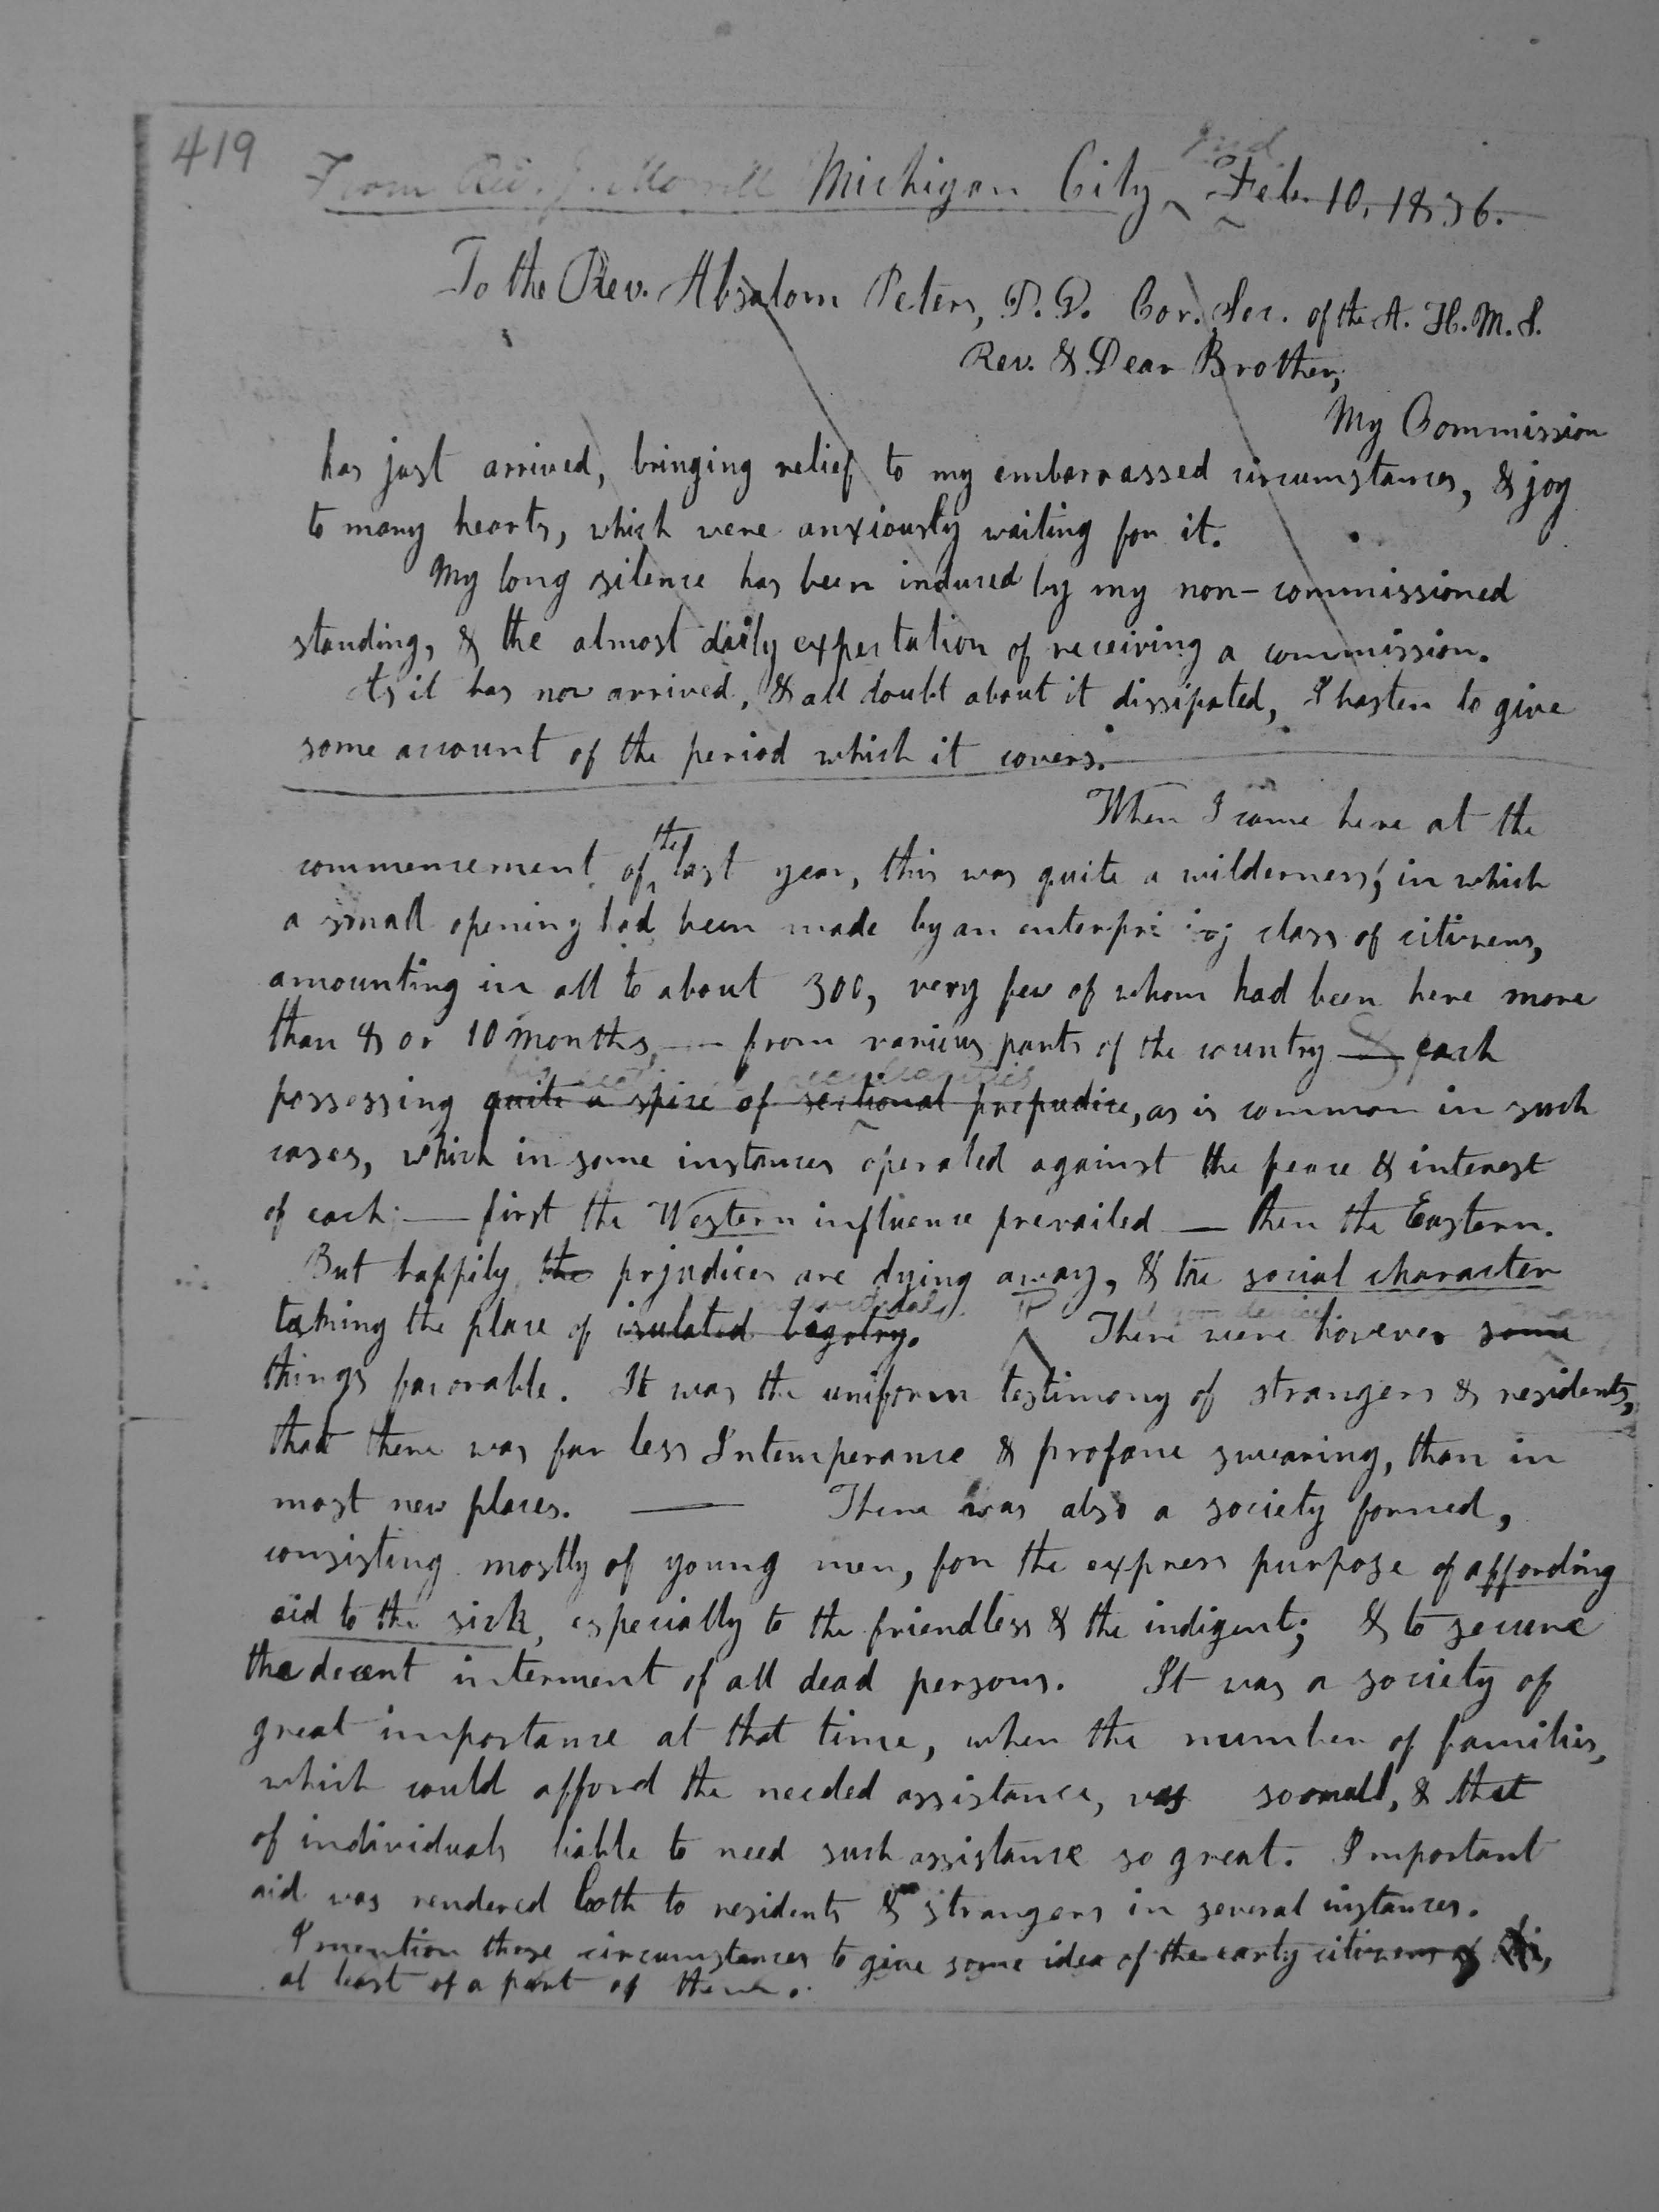 419
From Rev. J. Morrill Michigan City, Ind. Feb. 10, 1836.
To the Rev. Absalom Peters, D.D. Cor. Sec. of the A. H. M. S.
Rev. & Dear Brother,
My Commission
has just arrived, bringing relief to my embarrassed circumstances, & joy
to many hearts, which were anxiously waiting for it.
My long silence has been induced by my non-commissioned
standing, & the almost daily expectation of receiving a commission.
As it has now arrived, & all doubt about it dissipated, I hasten to give
some account of the period which it covers.
When I came here at the
commencement of the last year, this was quite a wilderness, in which
a small opening had been made by an enterprising class of citizens,
amounting in all to about 300, very few of whom had been here more
than 8 or 10 months, — from various parts of the country — each
peculiarities
possessing quite a spice of sectional prejudice, as is common in such
cases, which in some instances operated against the peace & interest
of each: — first the Western influence prevailed — then the Eastern.
But happily the prjudices are dying away, & the social character
taking the place of isulated bigotry. There were however some
things favorable. It was the uniform testimony of strangers & residents,
that there was far less Intemperance & profane swearing, than in
most new places. — There was also a society formed,
consisting mostly of young men, for the express purpose of affording
aid to the sick, especially to the friendless & the indigent; & to secure
the decent interment of all dead persons. It was a society of
great importance at that time, when the number of families,
which could afford the needed assistance, was so small, & that
of individuals liable to need such assistance so great. Important
aid was rendered both to residents & strangers in several instances.
I mention these circumstances to give some idea of the early citizens of
at least of a part of them.